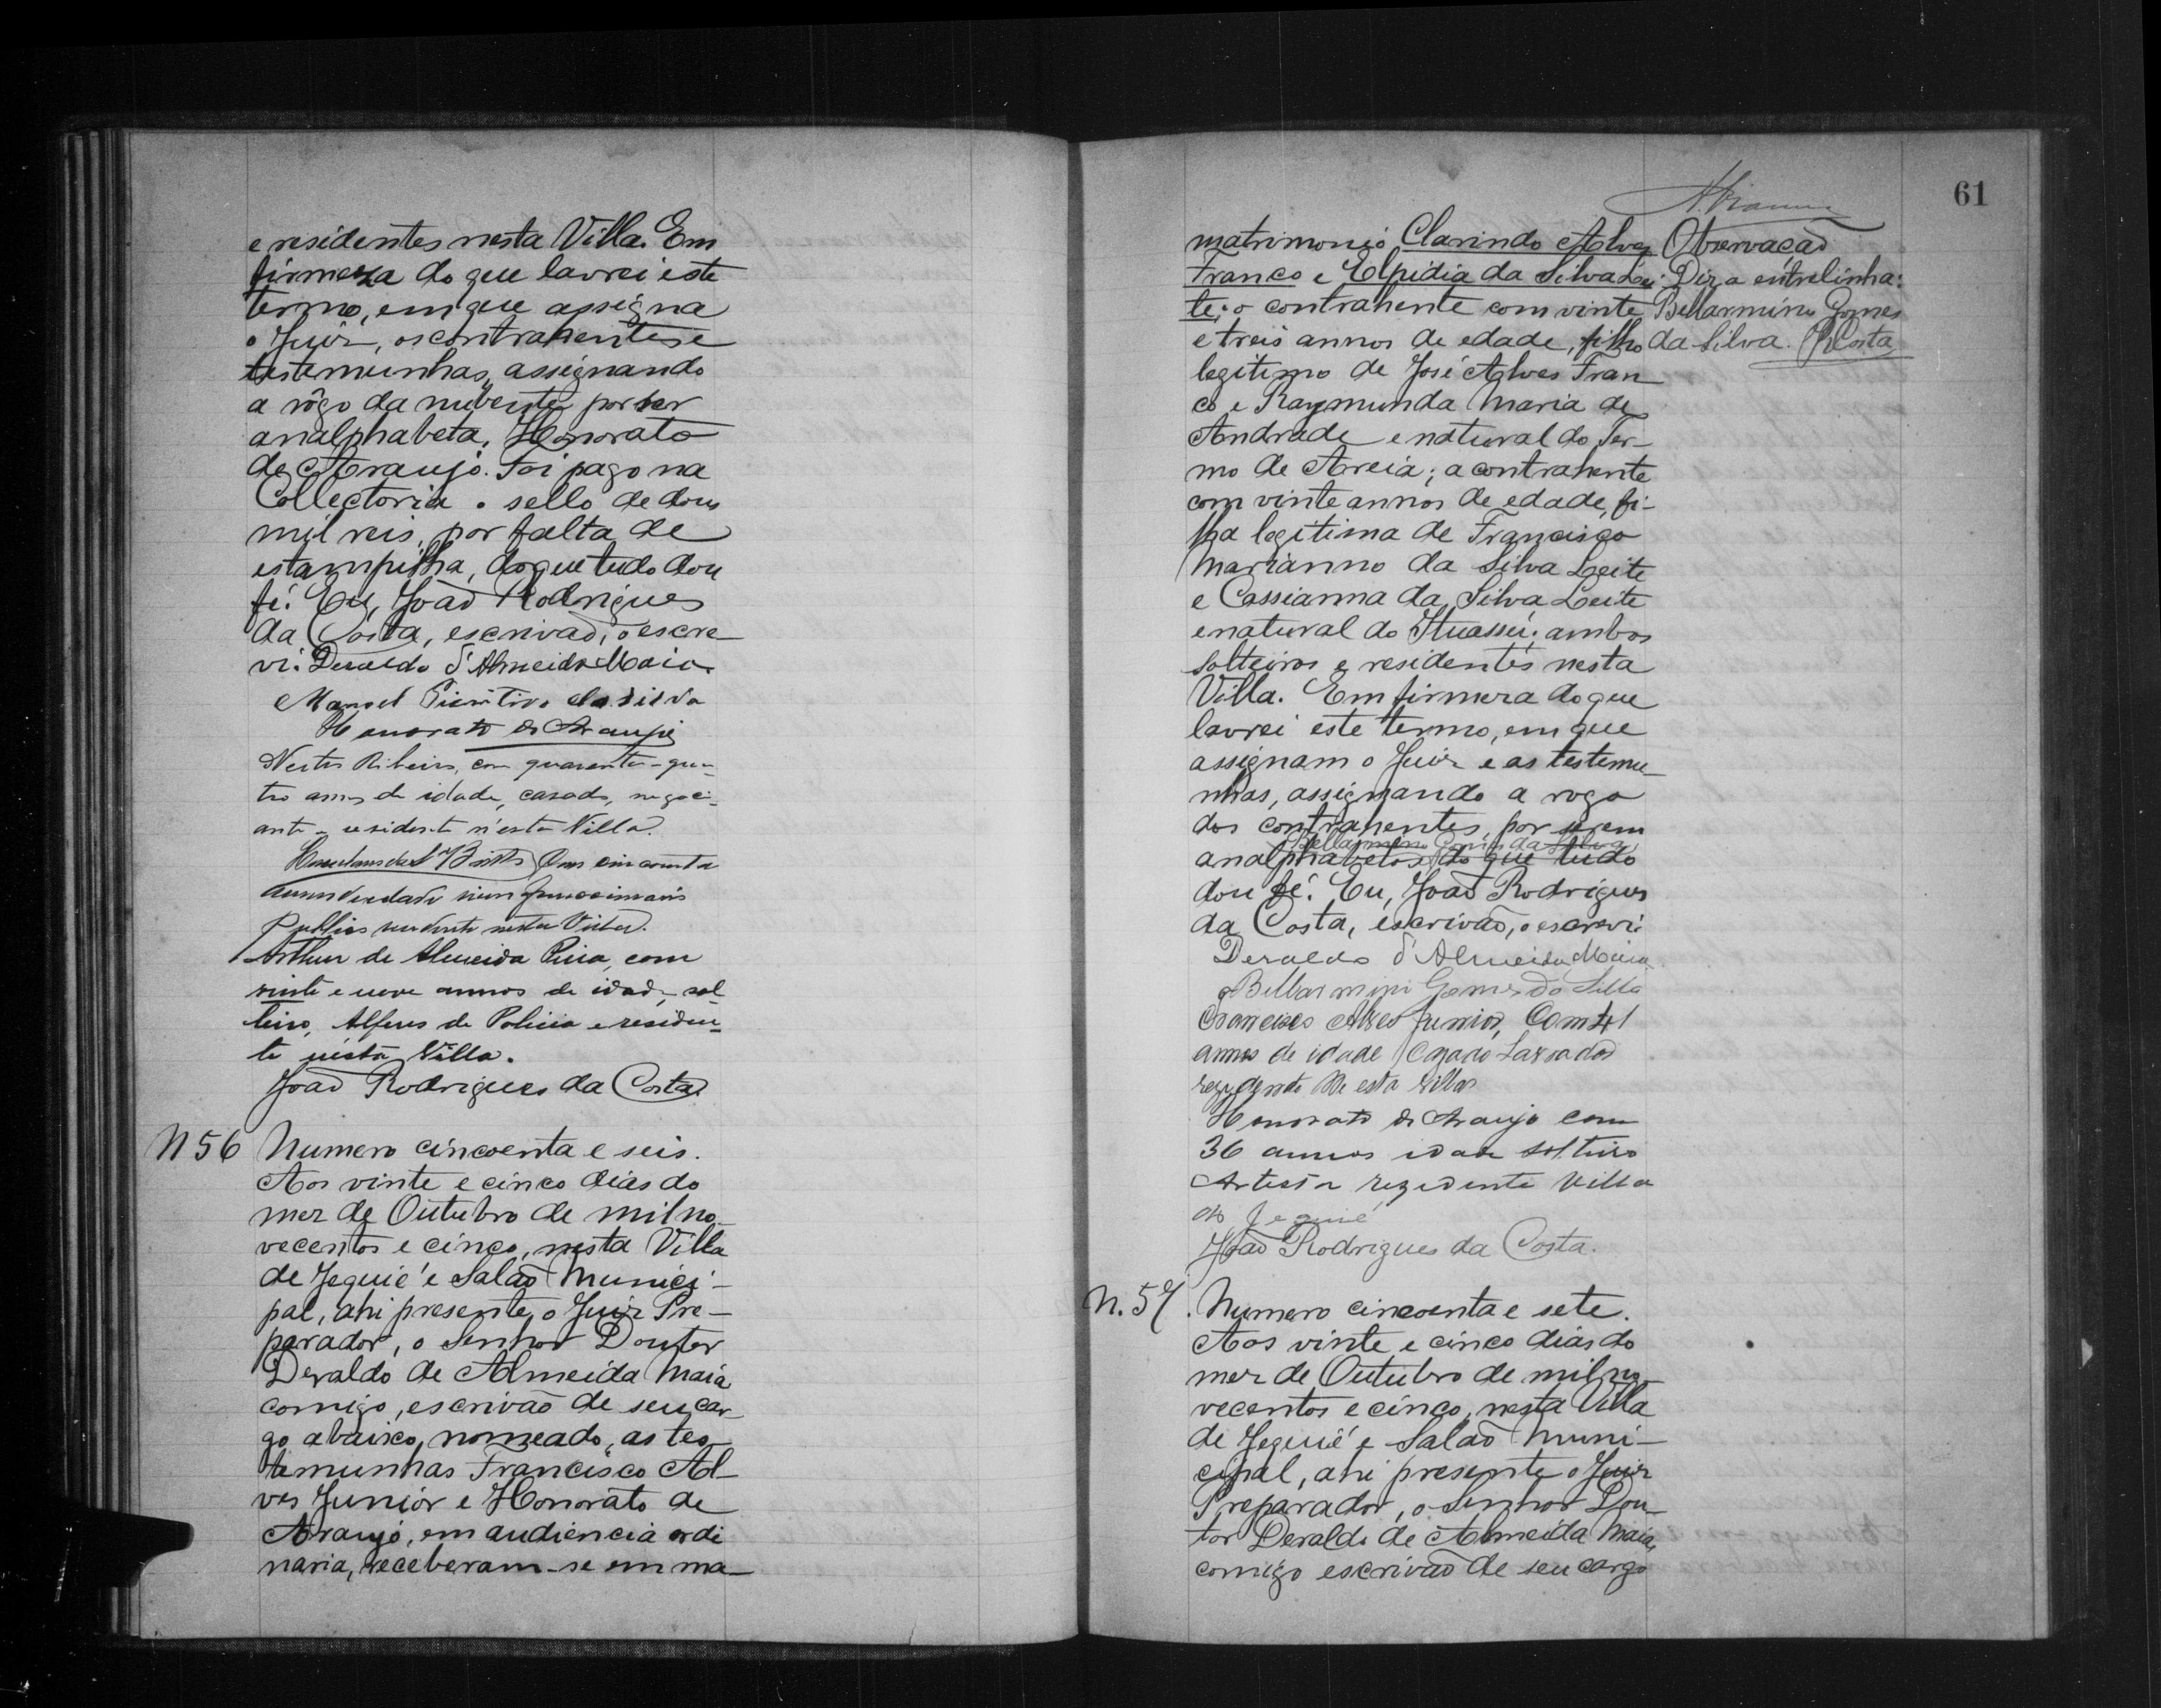 e residentes nesta Villa. Em
firmeza do que lavrei este
termo, em que assigna
o Juiz, os contrahentes e
testemunhas, assignando
a rôgo da nubente por ser
analphabeta, Honorato
de Araujo. Foi pago na
Collectoria o sello de dous
mil reis, por falta de
estampilha, do que tudo dou
fé. Eu, João Rodrigues
da Costa, escrivão, o escre
vi. Deraldo d'Almeida Maia
Manoel da Silva
Honorato de Araujo
Nestor Ribeiro, com quarenta e qua
tro annos de idade, casado, negoci
ante e residente n'esta Villa.
Britto Com cincoenta
annos
Publico residente nesta Villa.
Arthur de Almeida, com
vinte e nove annos de idade, sol
teiro, Alferes de Policia e residen
te nésta Villa.
João Rodrigues da Costa
N 56 Numero cincoenta e seis.
Aos vinte e cinco dias do
mez de Outubro de mil no_
vecentos e cinco, nesta Villa
de Jequié e Salão Munici_
pal, ahi presente o Juiz Pre_
parador, o Senhor Doutor
Deraldo de Almeida Maia
comigo, escrivão de seu car
go abaixo nomeado, as tes_
temunhas Francisco Al_
ves Junior e Honorato de
Araujo, em audiencia ordi
naria, receberam-se em ma_
61
matrimonio Clarindo Alves
Franco e Elpidia da Silva Lei
te; o contrahente com vinte
e treis annos de edade, filho
legitimo de José Alves Fran_
co e Raymunda Maria de
Andrade e natural do Ter_
mo de Areia; a contrahente
com vinte annos de edade, fi_
lha legitima de Francisco
Marianno da Silva Leite
e Cassianna da Silva Leite
e natural do Ituassú; ambos
solteiros e residentes nesta
Villa. Em firmeza do que
lavrei este termo, em que
assignam o Juiz e as testemu_
nhas, assignando a rogo
dos contrahentes, por serem
Bellarmino Gomes da Silva
analphabetos, do que tudo
dou fé. Eu, João Rodrigues
da Costa, escrivão, o escrevi.
Deraldo d'Almeida Maia
Bellarmino Gomes da Silva
Francisco Alves Junior, Com 41
annos de idade Cazado Lavrador
rezidente Ne esta villa
Honorato de Araujo com
36 annos idade solteiro
Artista rezidente Villa
de Jequié
João Rodrigues da Costa.
Observação
Diz a entrelinha:
Bellarmino Gomes
da Silva. RCosta
N. 57. Numero cincoenta e sete.
Aos vinte e cinco dias do
mez de Outubro de mil no_
vecentos e cinco, nesta Villa
de Jequié e Salão Muni_
cipal, ahi presente o Juiz
Preparador, o Senhor Dou_
tor Deraldo de Almeida Maia,
comigo escrivão de seu cargo